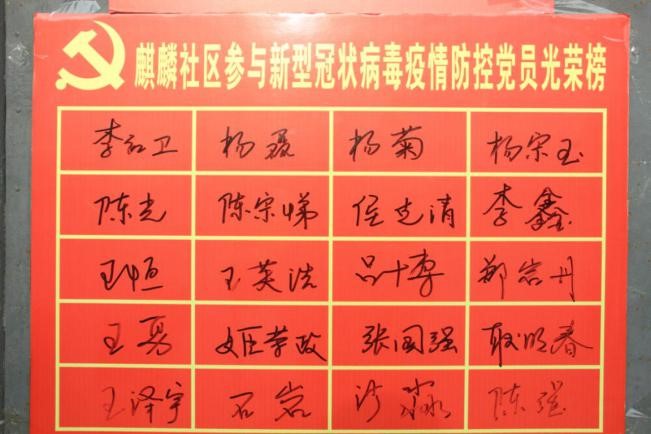 麒麟社区参与新型冠状病毒疫情防控党员光荣榜
李红卫 杨聂 杨菊 杨宗玉
陈光 陈宗娣 侯志清 李鑫
王恒 王英浩 吕十春 郑岩丹
王勇 姬学政 张国强 耿明春
王泽宇 石岩 沙淼 陈强